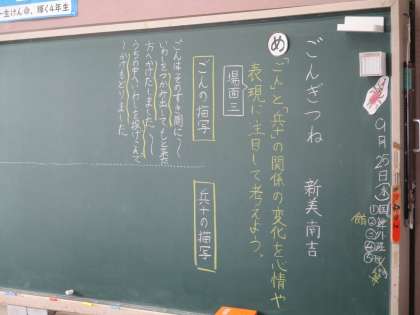 一生けん命、輝く4年生
9月25日(金)
①国
②
③
④
⑤
ごんぎつね 新美南吉
め 「ごん」と「兵十」の関係の変化を心情や
表現に注目して考えよう。
場面三
ごんの描写
兵十の描写
ごんはそのすき間に〜
いわしをつかみ出して、もと来た
方へかけだしました。〜
うちの中へいわしを投げこんで
〜かけもどりました。